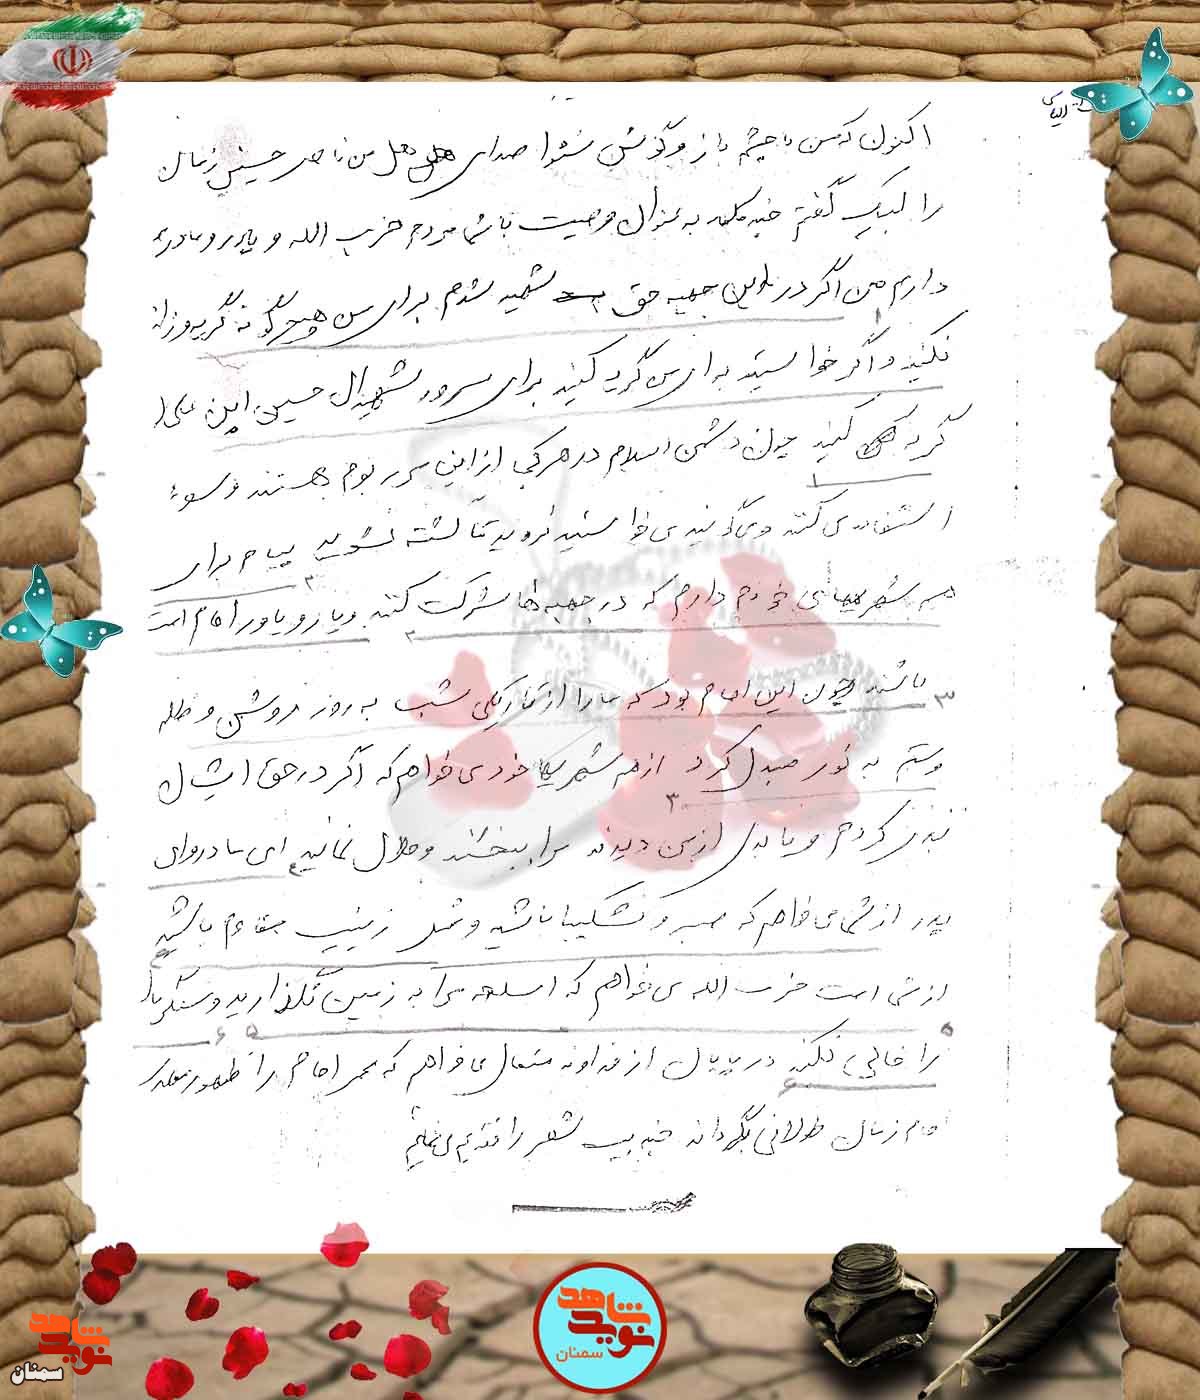 اکنون که من با چشم باز و گوش شنوا صدای هل من ناصر حسین زمان
را لبیک گفتم چند کلمه به عنوان وصیت با شما مردم حزب الله و پدر و مادرم
دارم من اگر در این جبهه حق شهید شدم برای من هیچ گونه گریه و زاری
نکنید و اگر خواستید برای من گریه کنید برای سرور شهیدان حسین ابن علی
گریه کنید چون دشمن اسلام در هر کجا از این مرز بوم هستند و سوء
استفاده می کنند و می گویند می خواستید نروید تا کشته نشوید پیام برای
همشهریهای خودم دارم که در جبهه ها شرکت کنند و یار و یاور امام امت
باشند چون این امام بود که ما را از تاریکی شب به روز روشن و ظلم
وستم به نور مبدل کرد از همشهریها خود می خواهم که اگر در حق ایشان
بدی کردم و یا بدی از من دیدند مرا ببخشند و حلال نمایند ای مادر و ای
پدر از شما می خواهم که صبر و شکیبا باشید و مثل زینب مقاوم باشید
از شما امت حزب الله می خواهم که اسلحه مرا به زمین نگذارید و سنگرها
را خالی نکنید در پایان از خداوند متعال می خواهم که عمر امام را تا ظهور
امام زمان طولانی بگرداند چند بیت شعر را تقدیم می نمایم
نوید شاهد
سمنان
نوید شاهد
سمنان